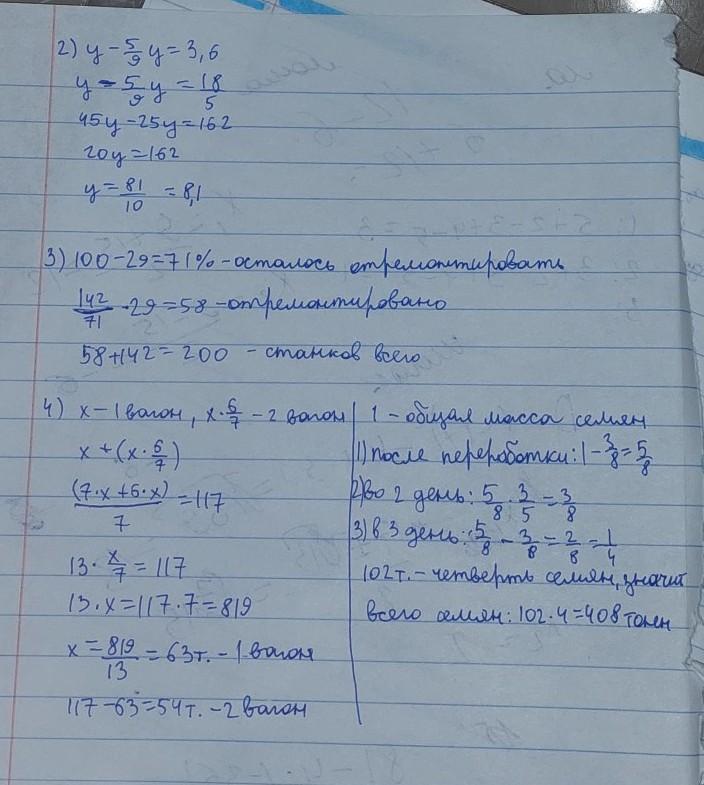 2) y - 5/9 y = 3,6
y - 5/9 y = 18/5
45y - 25y = 162
20y = 162
y = 81/10 = 8,1
3) 100 - 29 = 71% - осталось отремонтировать
142/71 · 29 = 58 - отремонтировано
58 + 142 = 200 - станков всего
4) x - 1 вагон, x · 6/7 - 2 вагон
x + (x · 6/7)
(7·x + 6·x)/7 = 117
13 · x/7 = 117
13 · x = 117 · 7 = 819
x = 819/13 = 63т. - 1 вагон
117 - 63 = 54т. - 2 вагон
1 - общая масса семян
1) после переработки: 1 - 3/8 = 5/8
2) во 2 день: 5/8 · 3/5 = 3/8
3) в 3 день: 5/8 - 3/8 = 2/8 = 1/4
102т. - четверть семян, значит
всего семян: 102 · 4 = 408 тонн